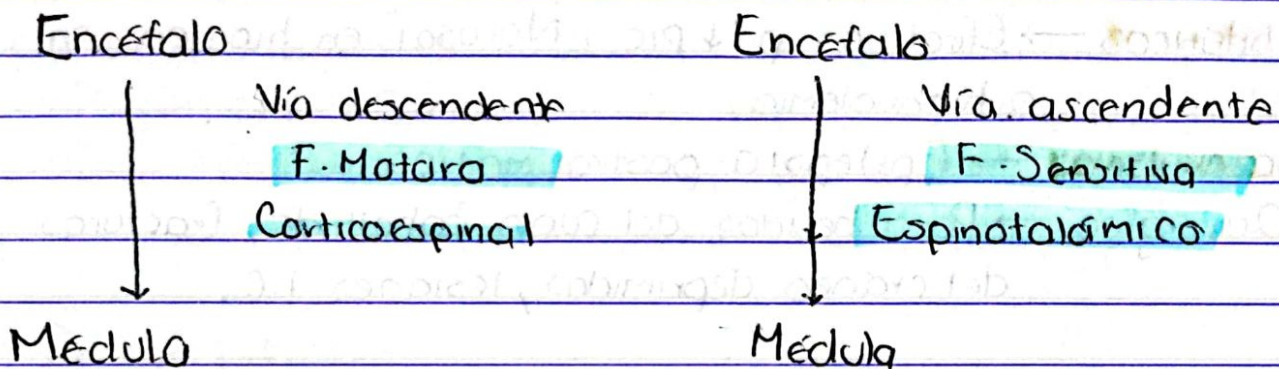 Encéfalo
Vía descendente
F. Motora
Corticoespinal
Médula
Encéfalo
Vía. ascendente
F. Sensitiva
Espinotalámico
Médula